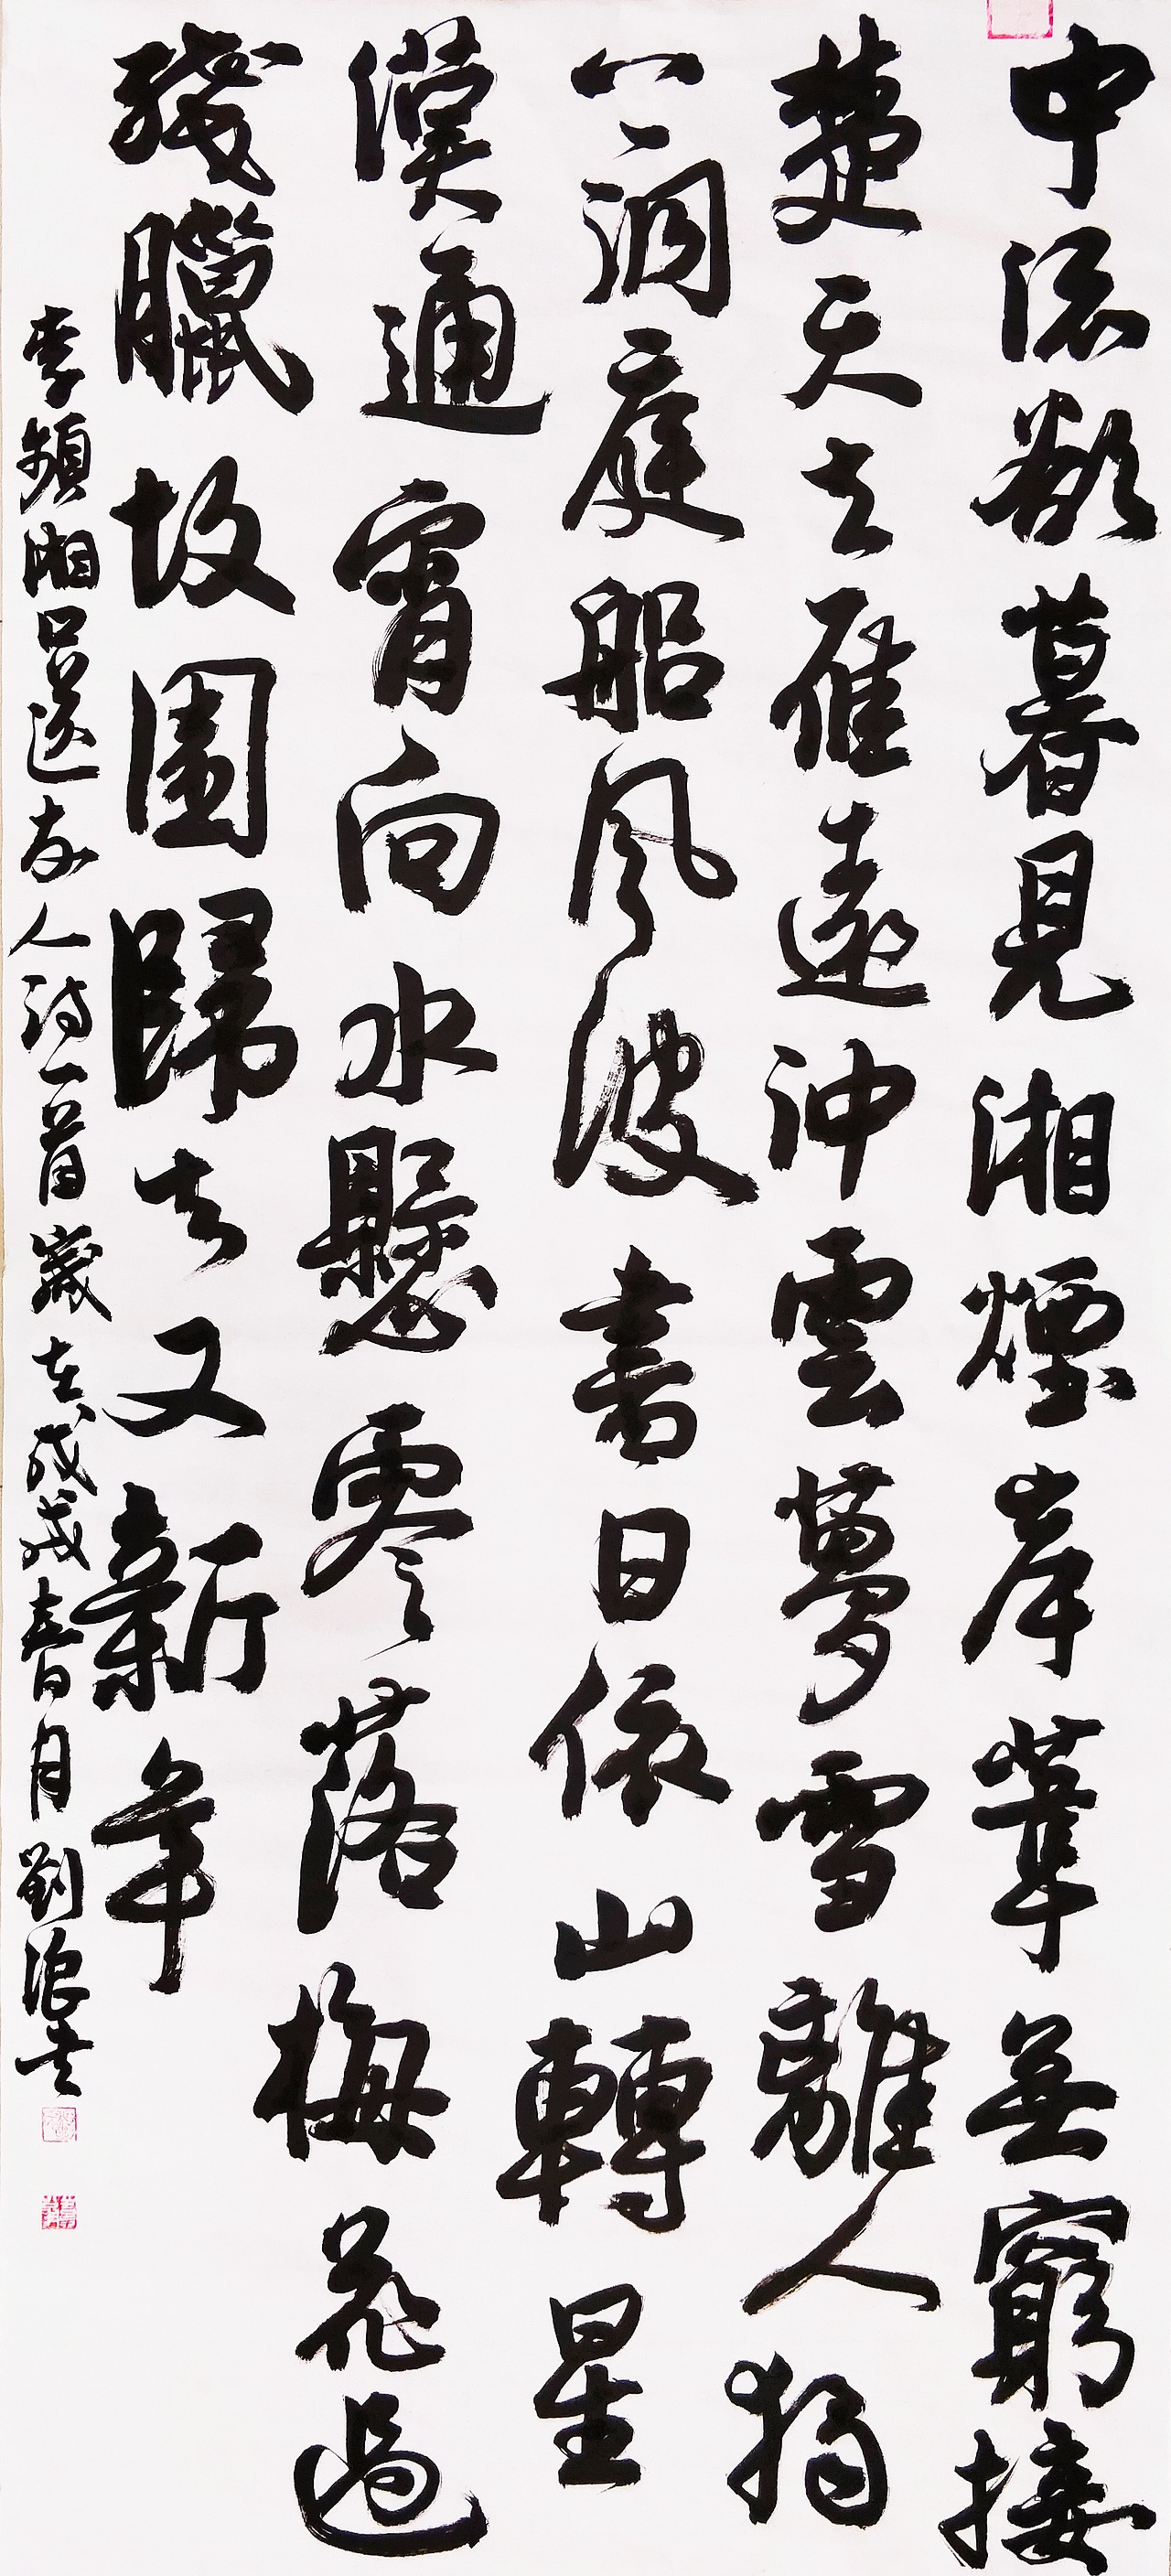 中流欲暮見湘煙岸葦無窮接
楚天去雁遠沖雲夢雪離人獨
上洞庭船風波書日依山轉星
漢通宵向水懸零落梅花過
殘臘故園歸去又新年
李頻湘口送友人詩一首歲在戊戌春月劉浪書